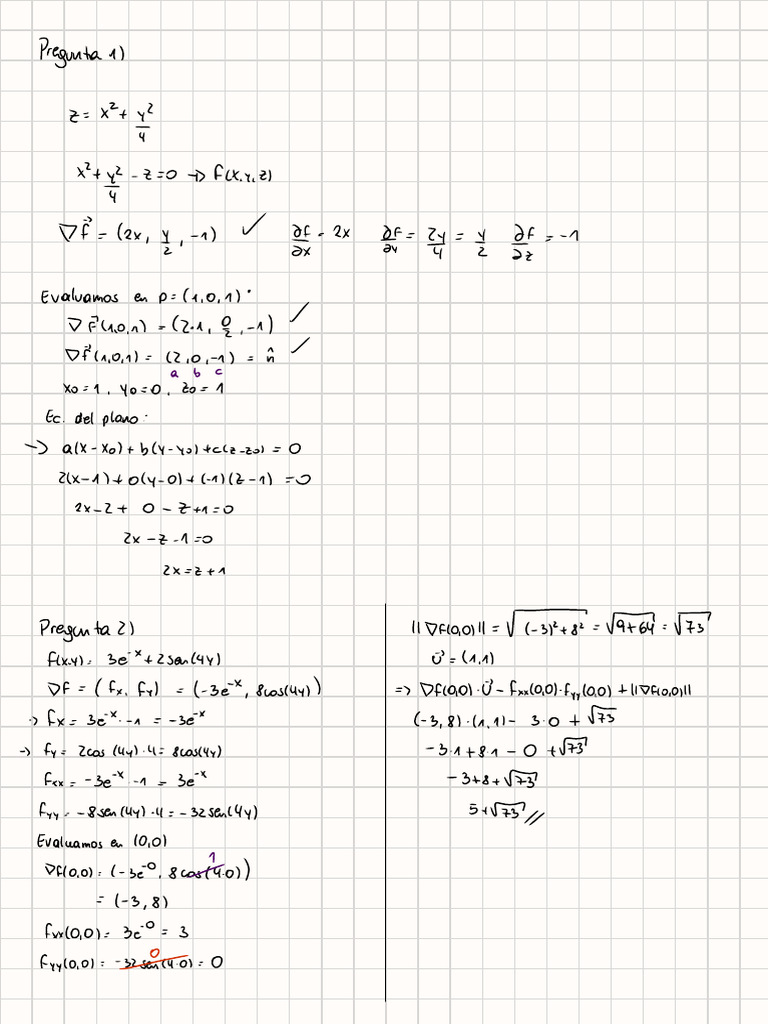 Pregunta 1)
z = x² + y²/4
x² + y²/4 - z = 0 → f(x,y,z)
∇f⃗ = (2x, y/2, -1) ✓ ∂f/∂x = 2x ∂f/∂y = 2y/4 = y/2 ∂f/∂z = -1
Evaluamos en p = (1,0,1) :
∇f⃗(1,0,1) = (2·1, 0/2, -1) ✓
∇f⃗(1,0,1) = (2,0,-1) = n̂ ✓
a b c
x0 = 1, y0 = 0, z0 = 1
Ec. del plano:
→ a(x-x0) + b(y-y0) + c(z-z0) = 0
2(x-1) + 0(y-0) + (-1)(z-1) = 0
2x-2 + 0 - z+1 = 0
2x - z - 1 = 0
2x = z + 1
Pregunta 2)
f(x,y) = 3e^-x + 2sen(4y)
∇f = (fx, fy) = (-3e^-x, 8cos(4y))
→ fx = 3e^-x · -1 = -3e^-x
→ fy = 2cos(4y)·4 = 8cos(4y)
fxx = -3e^-x · -1 = 3e^-x
fyy = -8sen(4y)·4 = -32sen(4y)
Evaluamos en (0,0)
1
∇f(0,0) = (-3e^-0, 8cos(4·0))
= (-3,8)
fxx(0,0) = 3e^-0 = 3
0
fyy(0,0) = -32sen(4·0) = 0
||∇f(0,0)|| = √((-3)² + 8²) = √(9+64) = √73
U⃗ = (1,1)
⇒ ∇f(0,0)·U⃗ - fxx(0,0)·fyy(0,0) + ||∇f(0,0)||
(-3,8)·(1,1) - 3·0 + √73
-3·1 + 8·1 - 0 + √73
-3+8+√73
5+√73 //